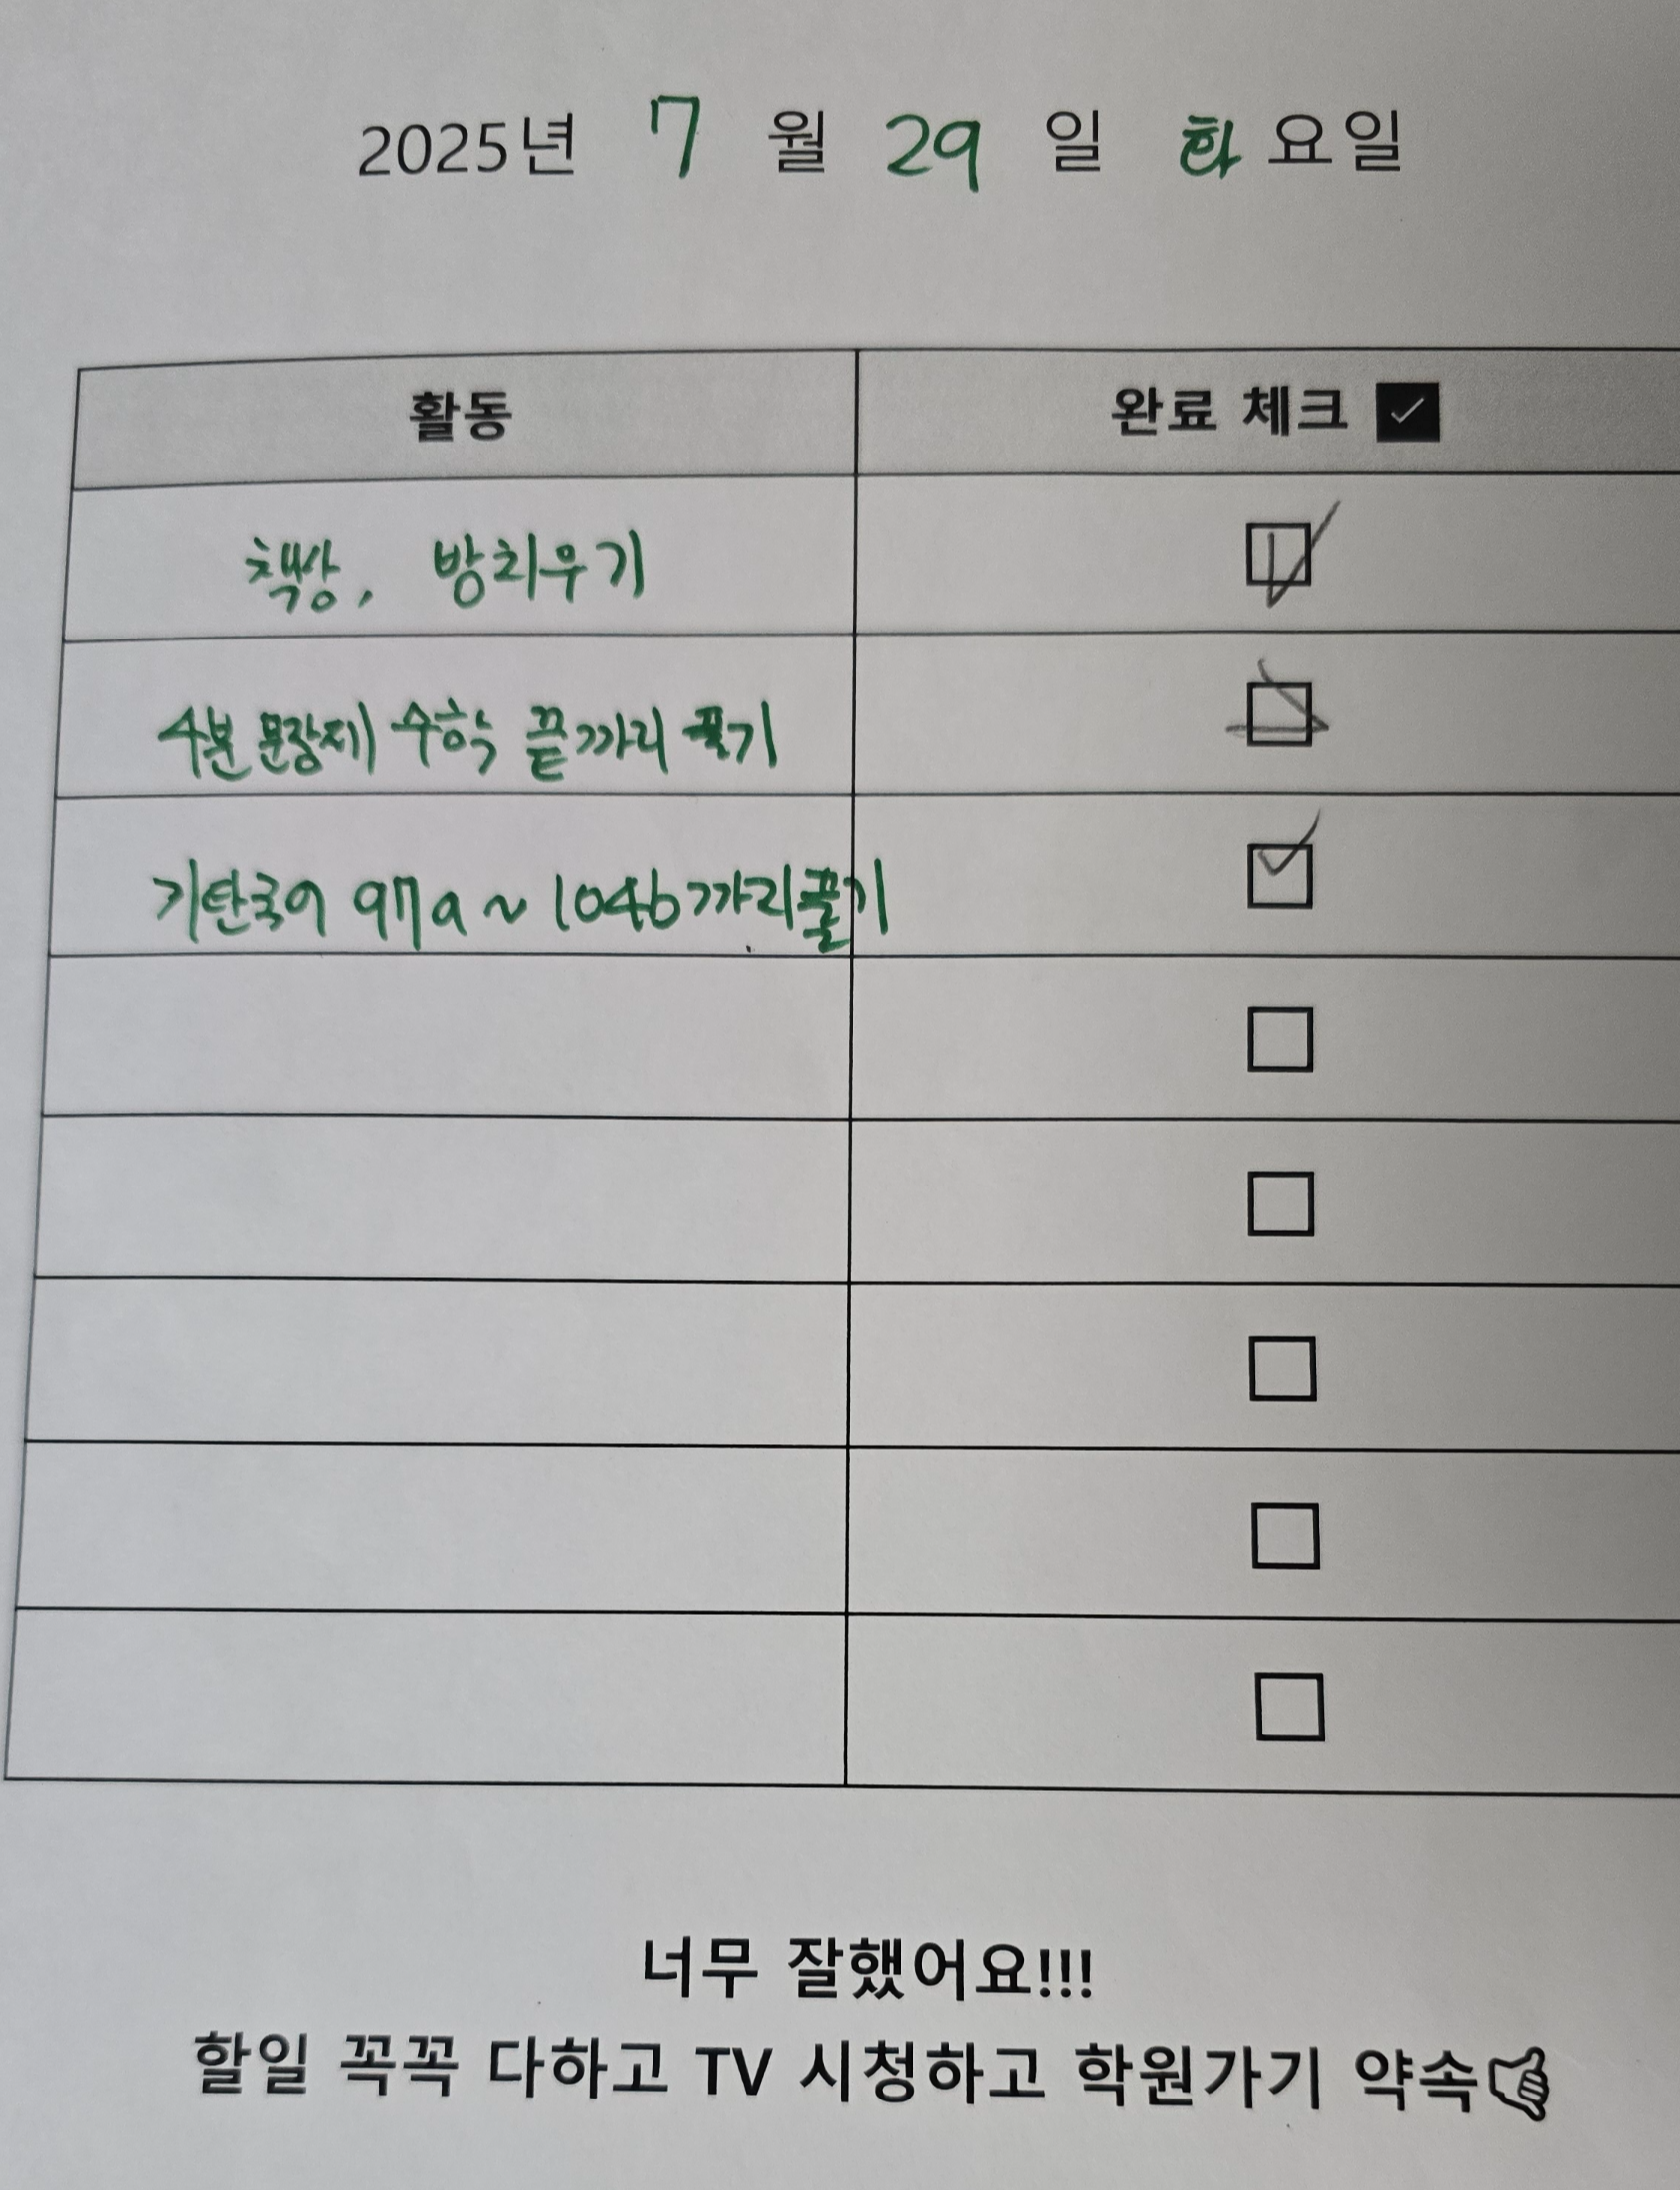 2025년 7 월 29 일 화요일
활동 완료 체크
책상, 방치우기
4분 문장제 수학 끝까지 풀기
기탄국어 97a ~ 104b까지풀기
너무 잘했어요!!!
할일 꼭꼭 다하고 TV 시청하고 학원가기 약속